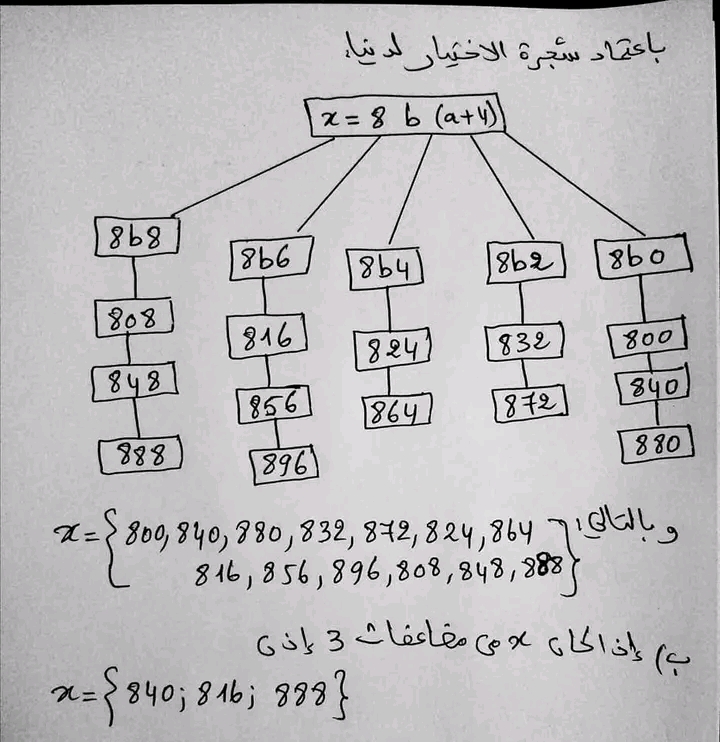 باعتماد شجرة الاختيار لدينا:
x = 8 b (a+4)
8b8 8b6 8b4 8b2 8b0
808 816 824 832 800
848 856 864 872 840
888 896 880
وبالتالي: x={800,840,880,832,872,824,864
816,856,896,808,848,888}
ب) إذا كان x من مضاعفات 3 إذن
x={840; 816; 888}